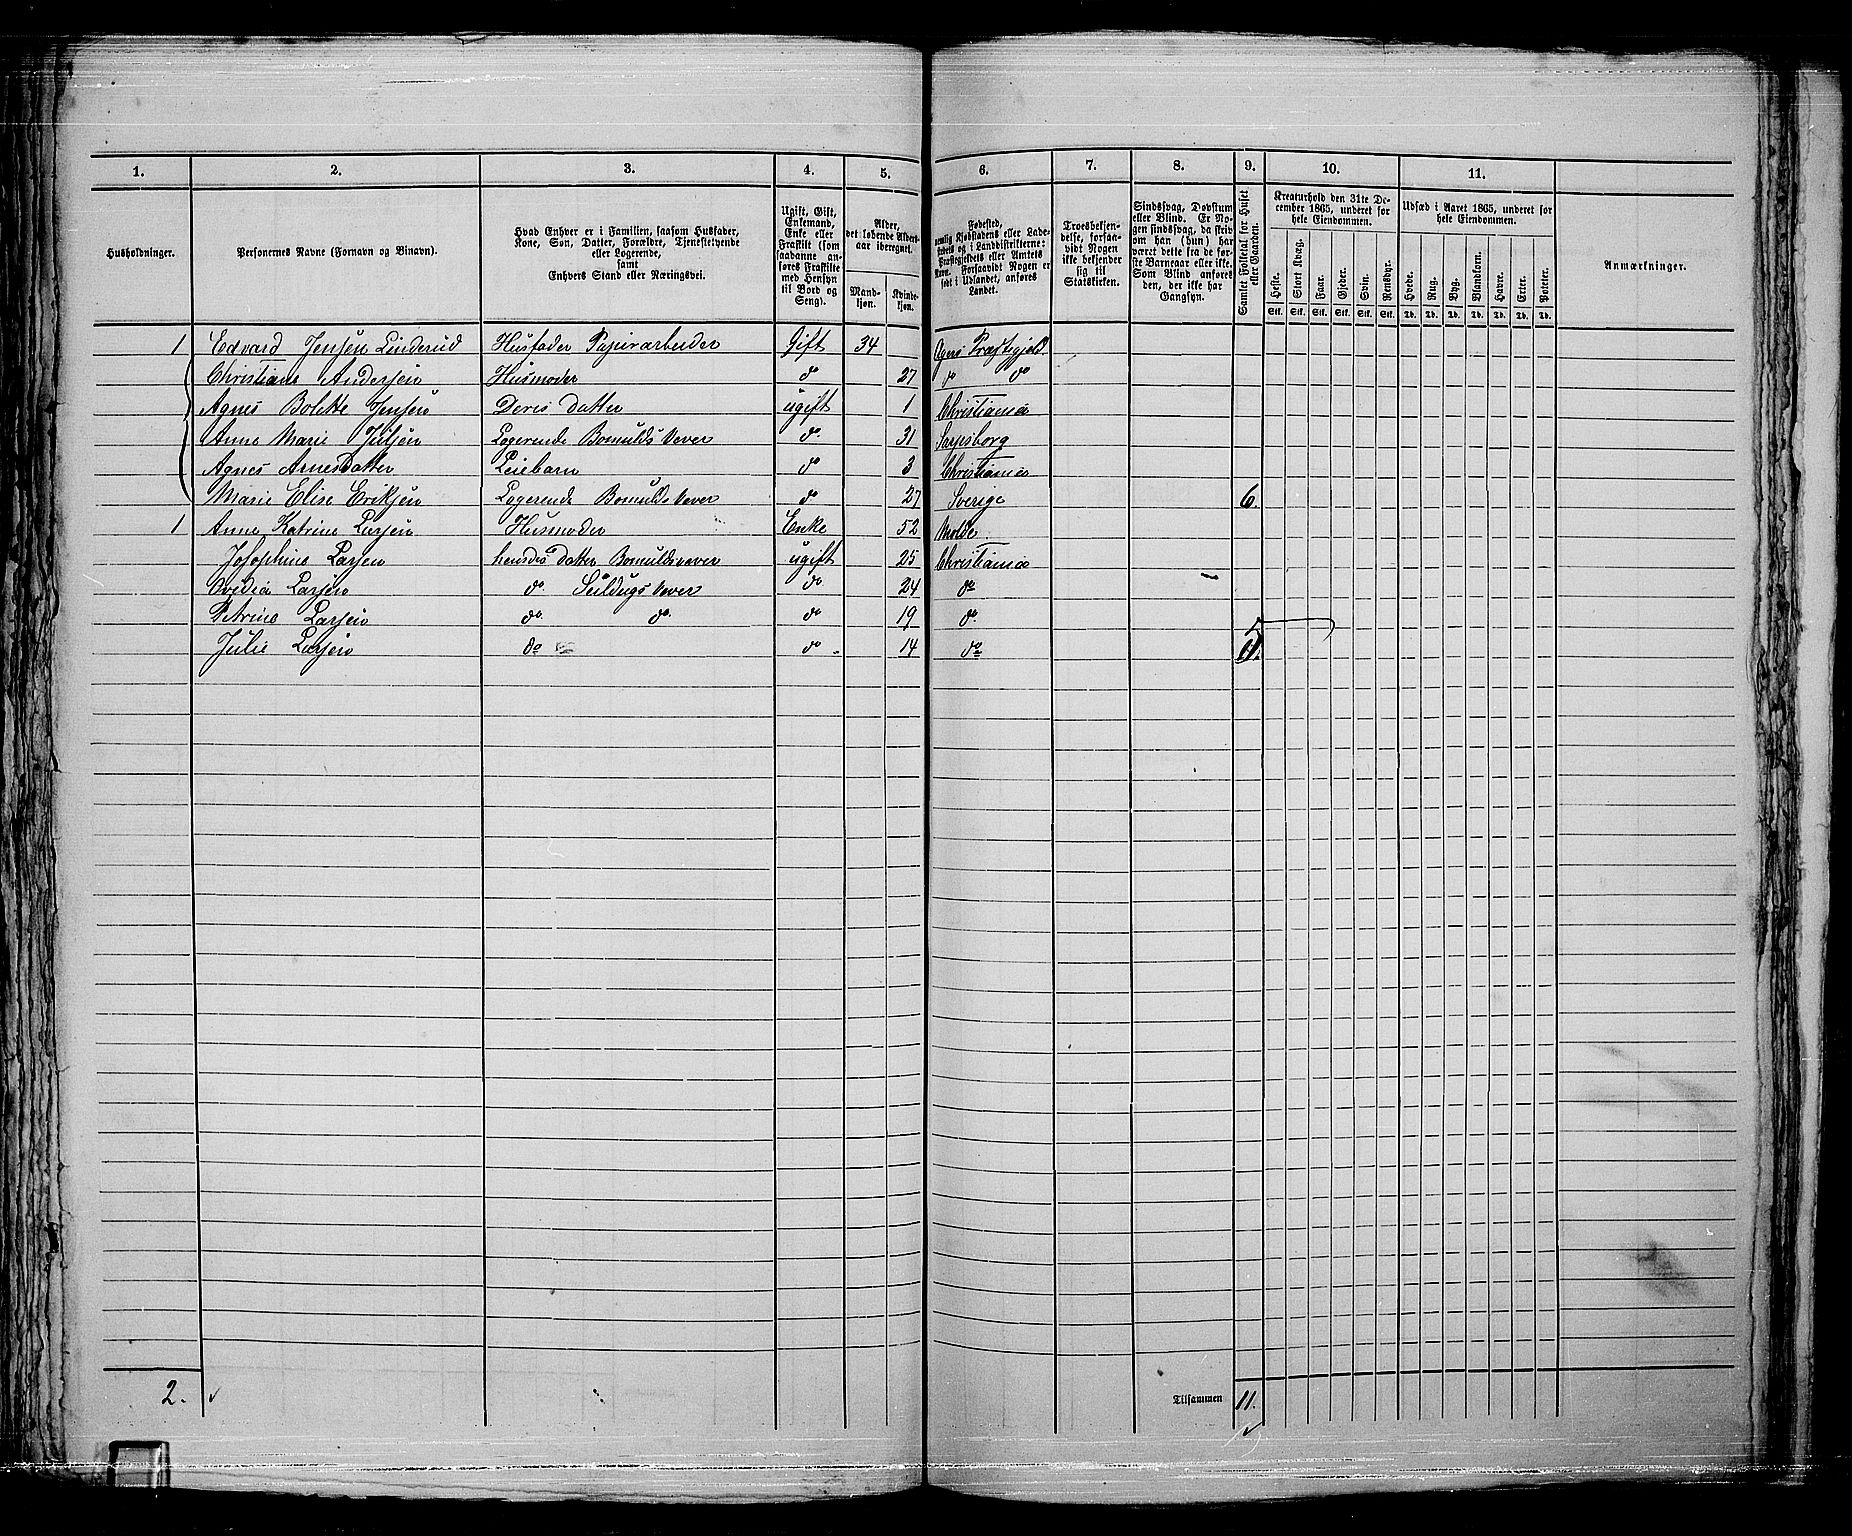 1. 2. 3. 4. 5. 6. 7. 8. 9. 10. 11.
Husholdninger.
Personernes Navne (Fornavn og Binavn).
Hvad Enhver er i Familien, saasom Husfader,
Kone, Søn, Datter, Forældre, Tjenestetyende
eller Logerende,
samt
Enhvers Stand eller Næringsvei.
Ugift, Gift,
Enkemand,
Enke eller
Fraskilt (som
saadanne an-
føres Fraskilte
med Hensyn
til Bord og
Seng).
Alder,
det løbende Alders-
aar iberegnet.
Mand-
kjøn.
Kvinde-
kjøn.
Fødested,
nemlig Kjøbstadens eller Lade-
stedets og i Landdistrikterne:
Præstegjeldets eller Amtets
Navn. Forsaavidt Nogen er
født i Udlandet, anføres
Landet.
Troesbekjen-
delse, forsaa-
vidt Nogen
ikke bekjender
sig til
Statskirken.
Sindssvag, Døvstum
eller Blind. Er No-
gen sindssvag, da skriv
om han (hun) har
været dette fra de før-
ste Barneaar eller ikke.
Som Blind anføres
den, der ikke har
Gangsyn.
Samlet Folketal for Huset
eller Gaarden.
Kreaturhold den 31te De-
cember 1865, underet for
hele Eiendommen.
Heste. Stort Kvæg. Faar. Gjeder. Svin. Rensdyr.
Stk. Stk. Stk. Stk. Stk. Stk.
Udsæd i Aaret 1865, underet for
hele Eiendommen.
Hvede. Rug. Byg. Blandkorn. Havre. Erter. Poteter.
Td. Td. Td. Td. Td. Td. Td.
Anmærkninger.
1 Edvard Jensen Linderud Husfader Papirarbeider Gift 34 Agers Præstegjeld
Christiane Andersen Husmoder do 27 do do
Agnes Bolette Jensen Deris datter ugift 1 Christiania
Anne Marie Julsen Logerende Bomulds Vever do. 31 Sarpsborg
Agnes Arnesdatter Leiebarn do 3 Christiania
Marie Elise Eriksen Logerende Bomulds Vever do 27 Sverige 6.
1 Anne Katrine Larsen Husmoder Enke 52 Molde.
Josephine Larsen hendes datter Bomuldsvever ugift 25 Christiania
Ovidia Larsen do. Seildugs Vever do 24 do
Petrine Larsen do. do. do 19 do.
Julie Larsen do do 14 do 5
2.
Tilsammen 11.